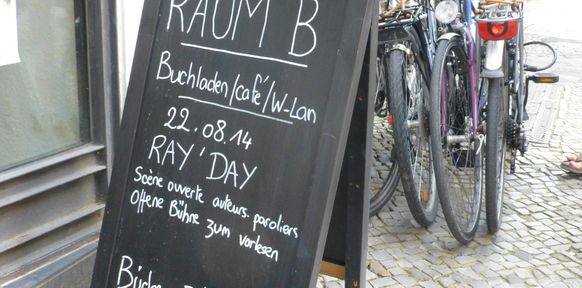 RAUM B
Buchladen/café/W-Lan
22.08.14
RAY'DAY
Scène ouverte auteurs.paroliers
Offene Bühne zum vorlesen